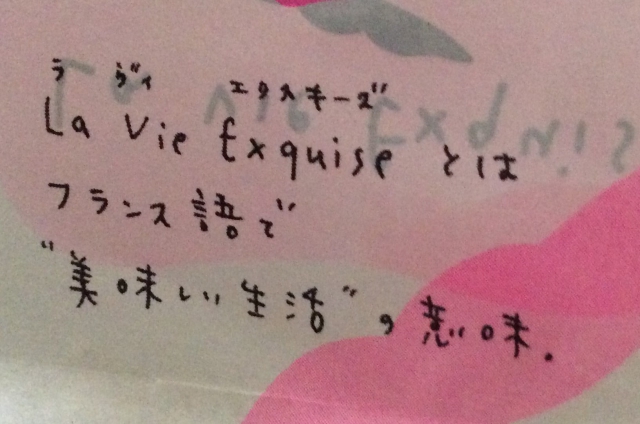 ラ ヴィ エクスキーズ
La Vie Exquise とは
フランス語で
"美味しい生活"の意味.